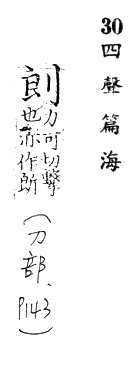 30四聲篇海
剆 力可切擊
也亦作
(刀部、P143)